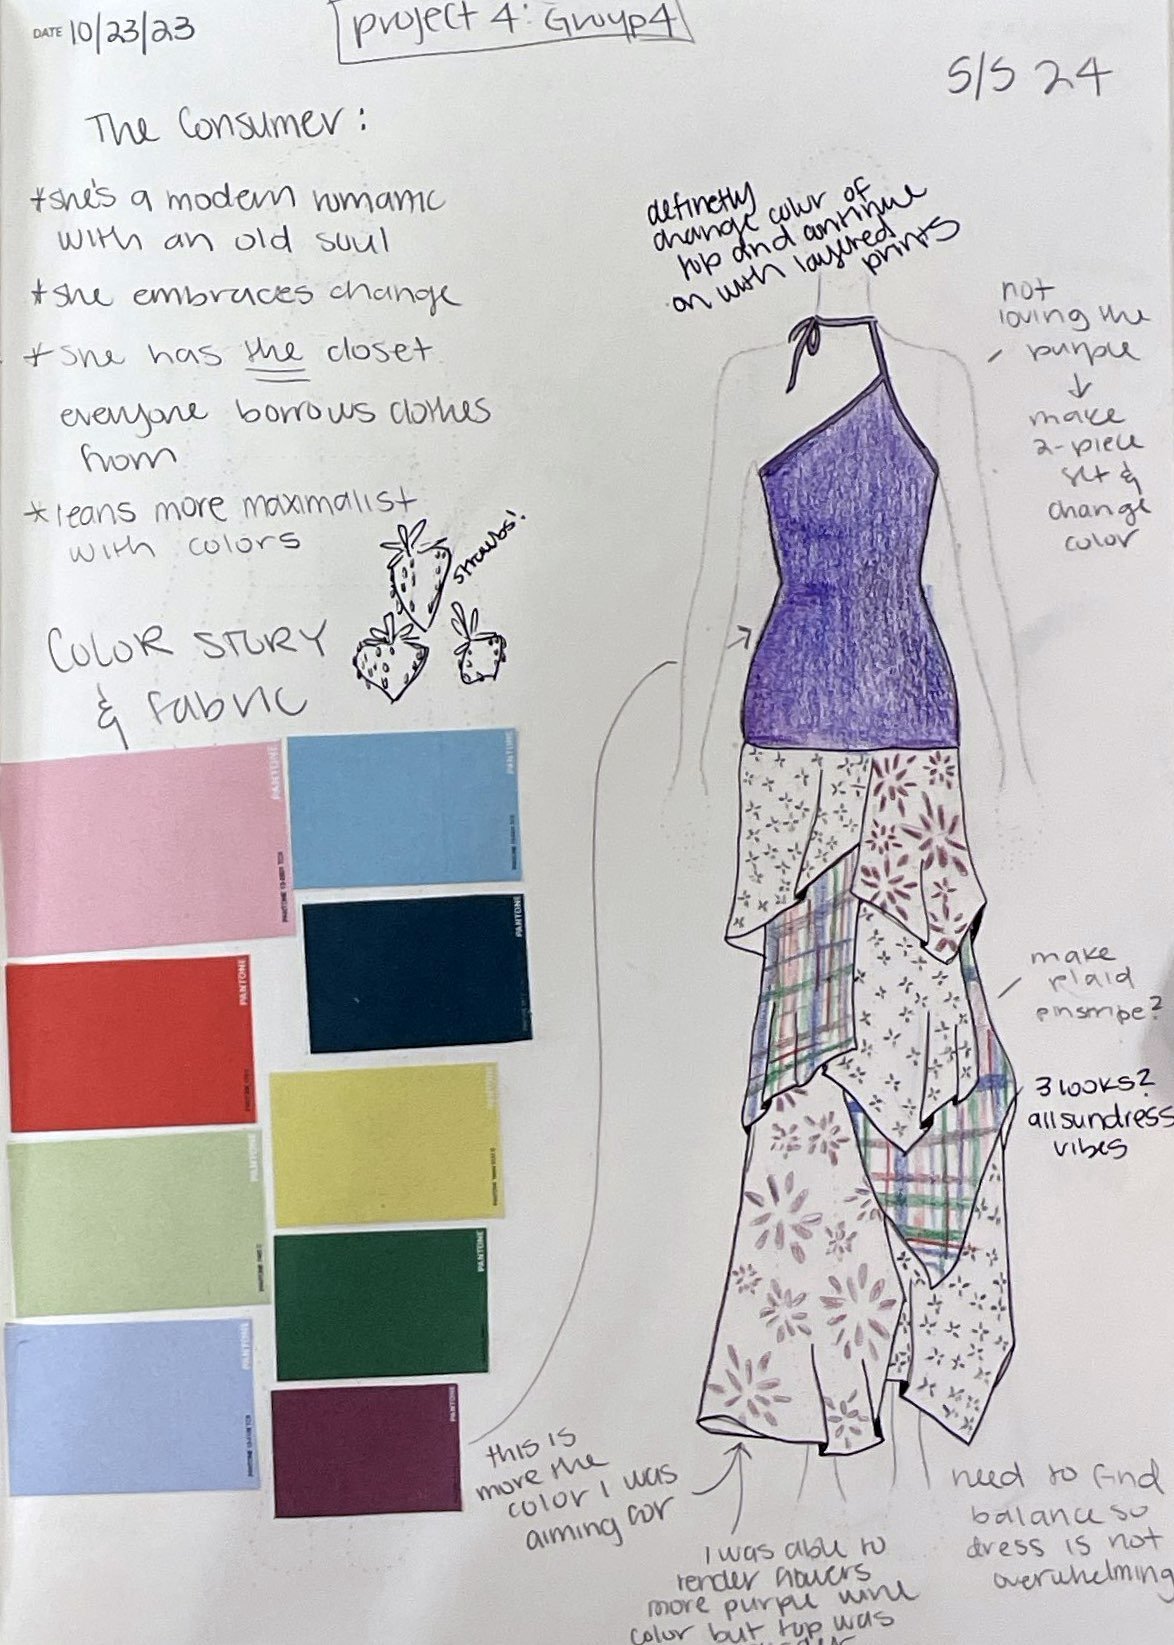 DATE 10/23/23
project 4: Group 4
S/S 24
The Consumer:
*she's a modern romantic
with an old soul
*she embraces change
*she has the closet
everyone borrows clothes
from
*leans more maximalist
with colors
strawbs!
COLOR STORY
& fabric
PANTONE
PANTONE
PANTONE
PANTONE
PANTONE
PANTONE
PANTONE
PANTONE
PANTONE
definetly
change color of
top and continue
on with layered
prints
not
loving the
purple
↓
make
2-piece
set &
change
color
make
plaid
pinstripe?
3 looks?
all sundress
vibes
this is
more the
color I was
aiming for
I was able to
render flowers
more purple wine
color but top was
need to find
balance so
dress is not
overwhelming